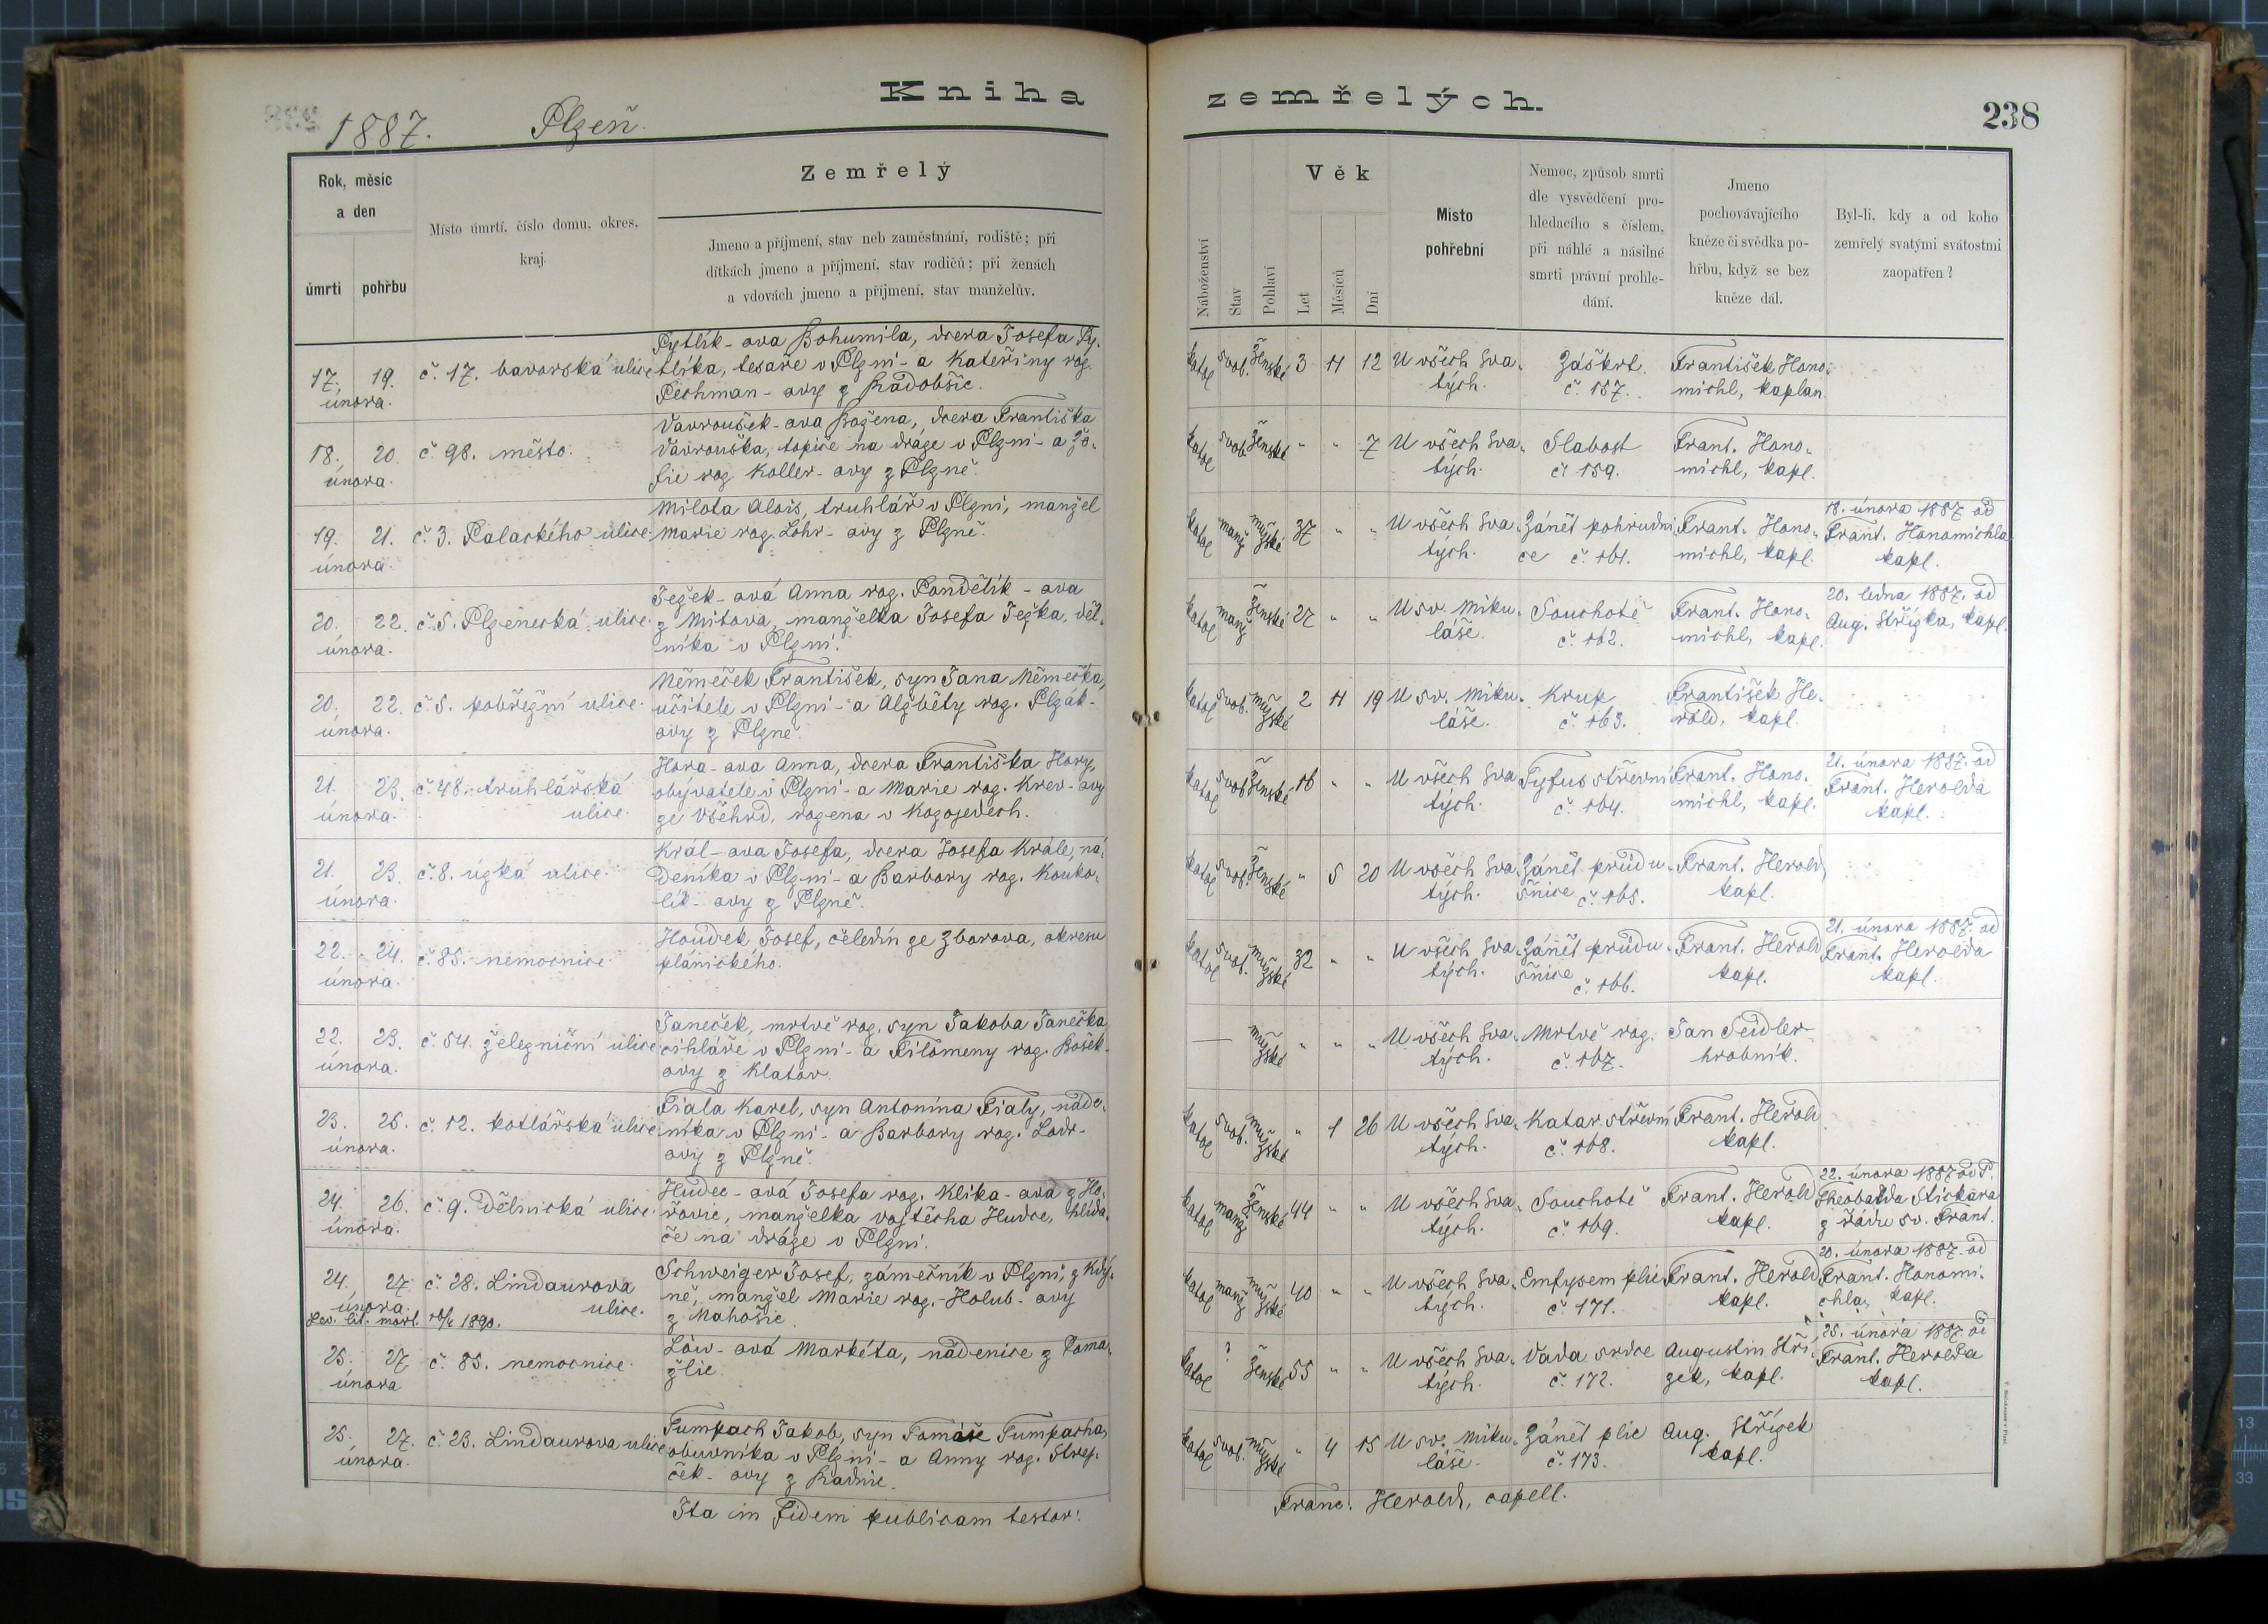 Kniha zemřelých.
1887. Plzeň. 238
Rok, měsíc
a den
úmrtí pohřbu
Místo úmrtí, číslo domu, okres,
kraj.
Zemřelý
Jmeno a příjmení, stav neb zaměstnání, rodiště; při
dítkách jmeno a příjmení, stav rodičů; při ženách
a vdovách jmeno a příjmení, stav manželův.
Náboženství
Stav
Pohlaví
Věk
Let
Měsíců
Dní
Místo
pohřební
Nemoc, způsob smrti
dle vysvědčení pro-
hledacího s číslem,
při náhlé a násilné
smrti právní prohle-
dání.
Jmeno
pochovávajícího
kněze či svědka po-
hřbu, když se bez
kněze dál.
Byl-li, kdy a od koho
zemřelý svatými svátostmi
zaopatřen?
17. 19.
února.
č. 17. bavorská ulice
Pytlík-ova Bohumila, dcera Josefa Py-
tlíka, tesaře v Plzni - a Kateřiny roz.
Pechman-ovy z Radobšic.
katol svob. ženské 3 11 12
U všech Sva-
tých.
Záškrt.
č. 157.
František Hono-
michl, kaplan.
18. 20.
února.
č. 98. město.
Vavroušek-ova Božena, dcera Františka
Vavrouška, topiče na dráze v Plzni - a Žo-
fie roz. Koller-ovy z Plzně.
katol svob. ženské " " 7
U všech Sva-
tých.
Slabost
č. 159.
Frant. Hono-
michl, kapl.
19. 21.
února.
č. 3. Palackého ulice.
Milota Alois, truhlář v Plzni, manžel
Marie roz. Lohr-ovy z Plzně.
katol manž mužské 37 " "
U všech Sva-
tých.
Zánět pohrudni
ce č. 161.
Frant. Hono-
michl, kapl.
18. února 1887 od
Frant. Honomichla
kapl.
20. 22.
února.
č. 5. Plzenecká ulice.
Ježek-ová Anna roz. Pondělík-ova
z Mitova, manželka Josefa Ježka, děl-
níka v Plzni.
katol manž ženské 27 " "
U sv. Miku-
láše.
Souchotě
č. 162.
Frant. Hono-
michl, kapl.
20. ledna 1887. od
Aug. Střízka, kapl.
20. 22.
února.
č. 5. pobřežní ulice.
Němeček František, syn Jana Němečka,
učitele v Plzni - a Alžběty roz. Plzák-
ovy z Plzně.
katol svob. mužské 2 11 19
U sv. Miku-
láše.
Krup
č. 163.
František He-
rold, kapl.
21. 23.
února.
č. 48. truhlářská
ulice.
Hora-ova Anna, dcera Františka Hory,
obyvatele v Plzni - a Marie roz. Krev-ovy
ze Všehrd, rozena v Kozojedech.
katol svob. ženské 16 " "
U všech Sva
tých.
Tyfus střevní
č. 164.
Frant. Hono-
michl, kapl.
21. února 1887. od
Frant. Herolda
kapl.
21. 23.
února.
č. 8. úzká ulice.
Král-ova Josefa, dcera Josefa Krále, ná-
deníka v Plzni - a Barbory roz. Kouko-
lík-ovy z Plzně.
katol svob. ženské " 5 20
U všech Sva-
tých.
Zánět průdu-
šnice č. 165.
Frant. Herold
kapl.
22. 24.
února.
č. 85. nemocnice.
Houdek Josef, čeledín ze Zborova, okresu
plánického.
katol svob. mužské 32 " "
U všech Sva-
tých.
Zánět průdu-
šnice
č. 166.
Frant. Herold
kapl.
21. února 1887. od
Frant. Herolda
kapl.
22. 23.
února.
č. 54. železniční ulice
Janeček, mrtvě roz. syn Jakoba Janečka
cihláře v Plzni - a Filomeny roz. Bošek-
ovy z Klatov.
— mužské " " "
U všech Sva-
tých.
Mrtvě roz.
č. 167.
Jan Seidler
hrobník.
23. 25.
února.
č. 12. kotlářská ulice
Fiala Karel, syn Antonína Fialy, náde-
níka v Plzni - a Barbory roz. Lodr-
ovy z Plzně.
katol svob. mužské " 1 26
U všech Sva-
tých.
Katar střevní
č. 168.
Frant. Herold
kapl.
24. 26.
února.
č. 9. Dělnická ulice.
Hudec-ová Josefa roz. Klika-ova z Ho-
řovic, manželka Vojtěcha Hudce, hlída-
če na dráze v Plzni.
katol manž ženské 44 " "
U všech Sva-
tých.
Souchotě
č. 169.
Frant. Herold
kapl.
22. února 1887 od P.
Theobalda Stickara
z řádu sv. Frant.
24. 27
února.
č. 28. Lindaurova
ulice.
Schweiger Josef, zámečník v Plzni, z Kdy-
ně, manžel Marie roz. Holub-ovy
z Mahošic.
katol manž mužské 40 " "
U všech Sva-
tých.
Emfysem plic
č. 171.
Frant. Herold
kapl.
20. února 1887. od
Frant. Honomi-
chla, kapl.
lit. mort. 1890.
25. 27
února
č. 85. nemocnice.
Löw-ová Markéta, nádenice z Doma-
žlic.
katol ? ženské 55 " "
U všech Sva-
tých.
Vada srdce
č. 172.
Augustin Stří-
zek, kapl.
25. února 1887. od
Frant. Herolda
kapl.
25. 27.
února.
č. 23. Lindaurova ulice
Tumpach Jakob, syn Tomáše Tumpacha,
obuvníka v Plzni - a Anny roz. Strej-
ček-ovy z Radnic.
katol svob. mužské " 4 15
U sv. Miku-
láše.
Zánět plic
č. 173.
Aug. Střízek
kapl.
Ita in fidem publicam testor: Franc. Herold, capell.